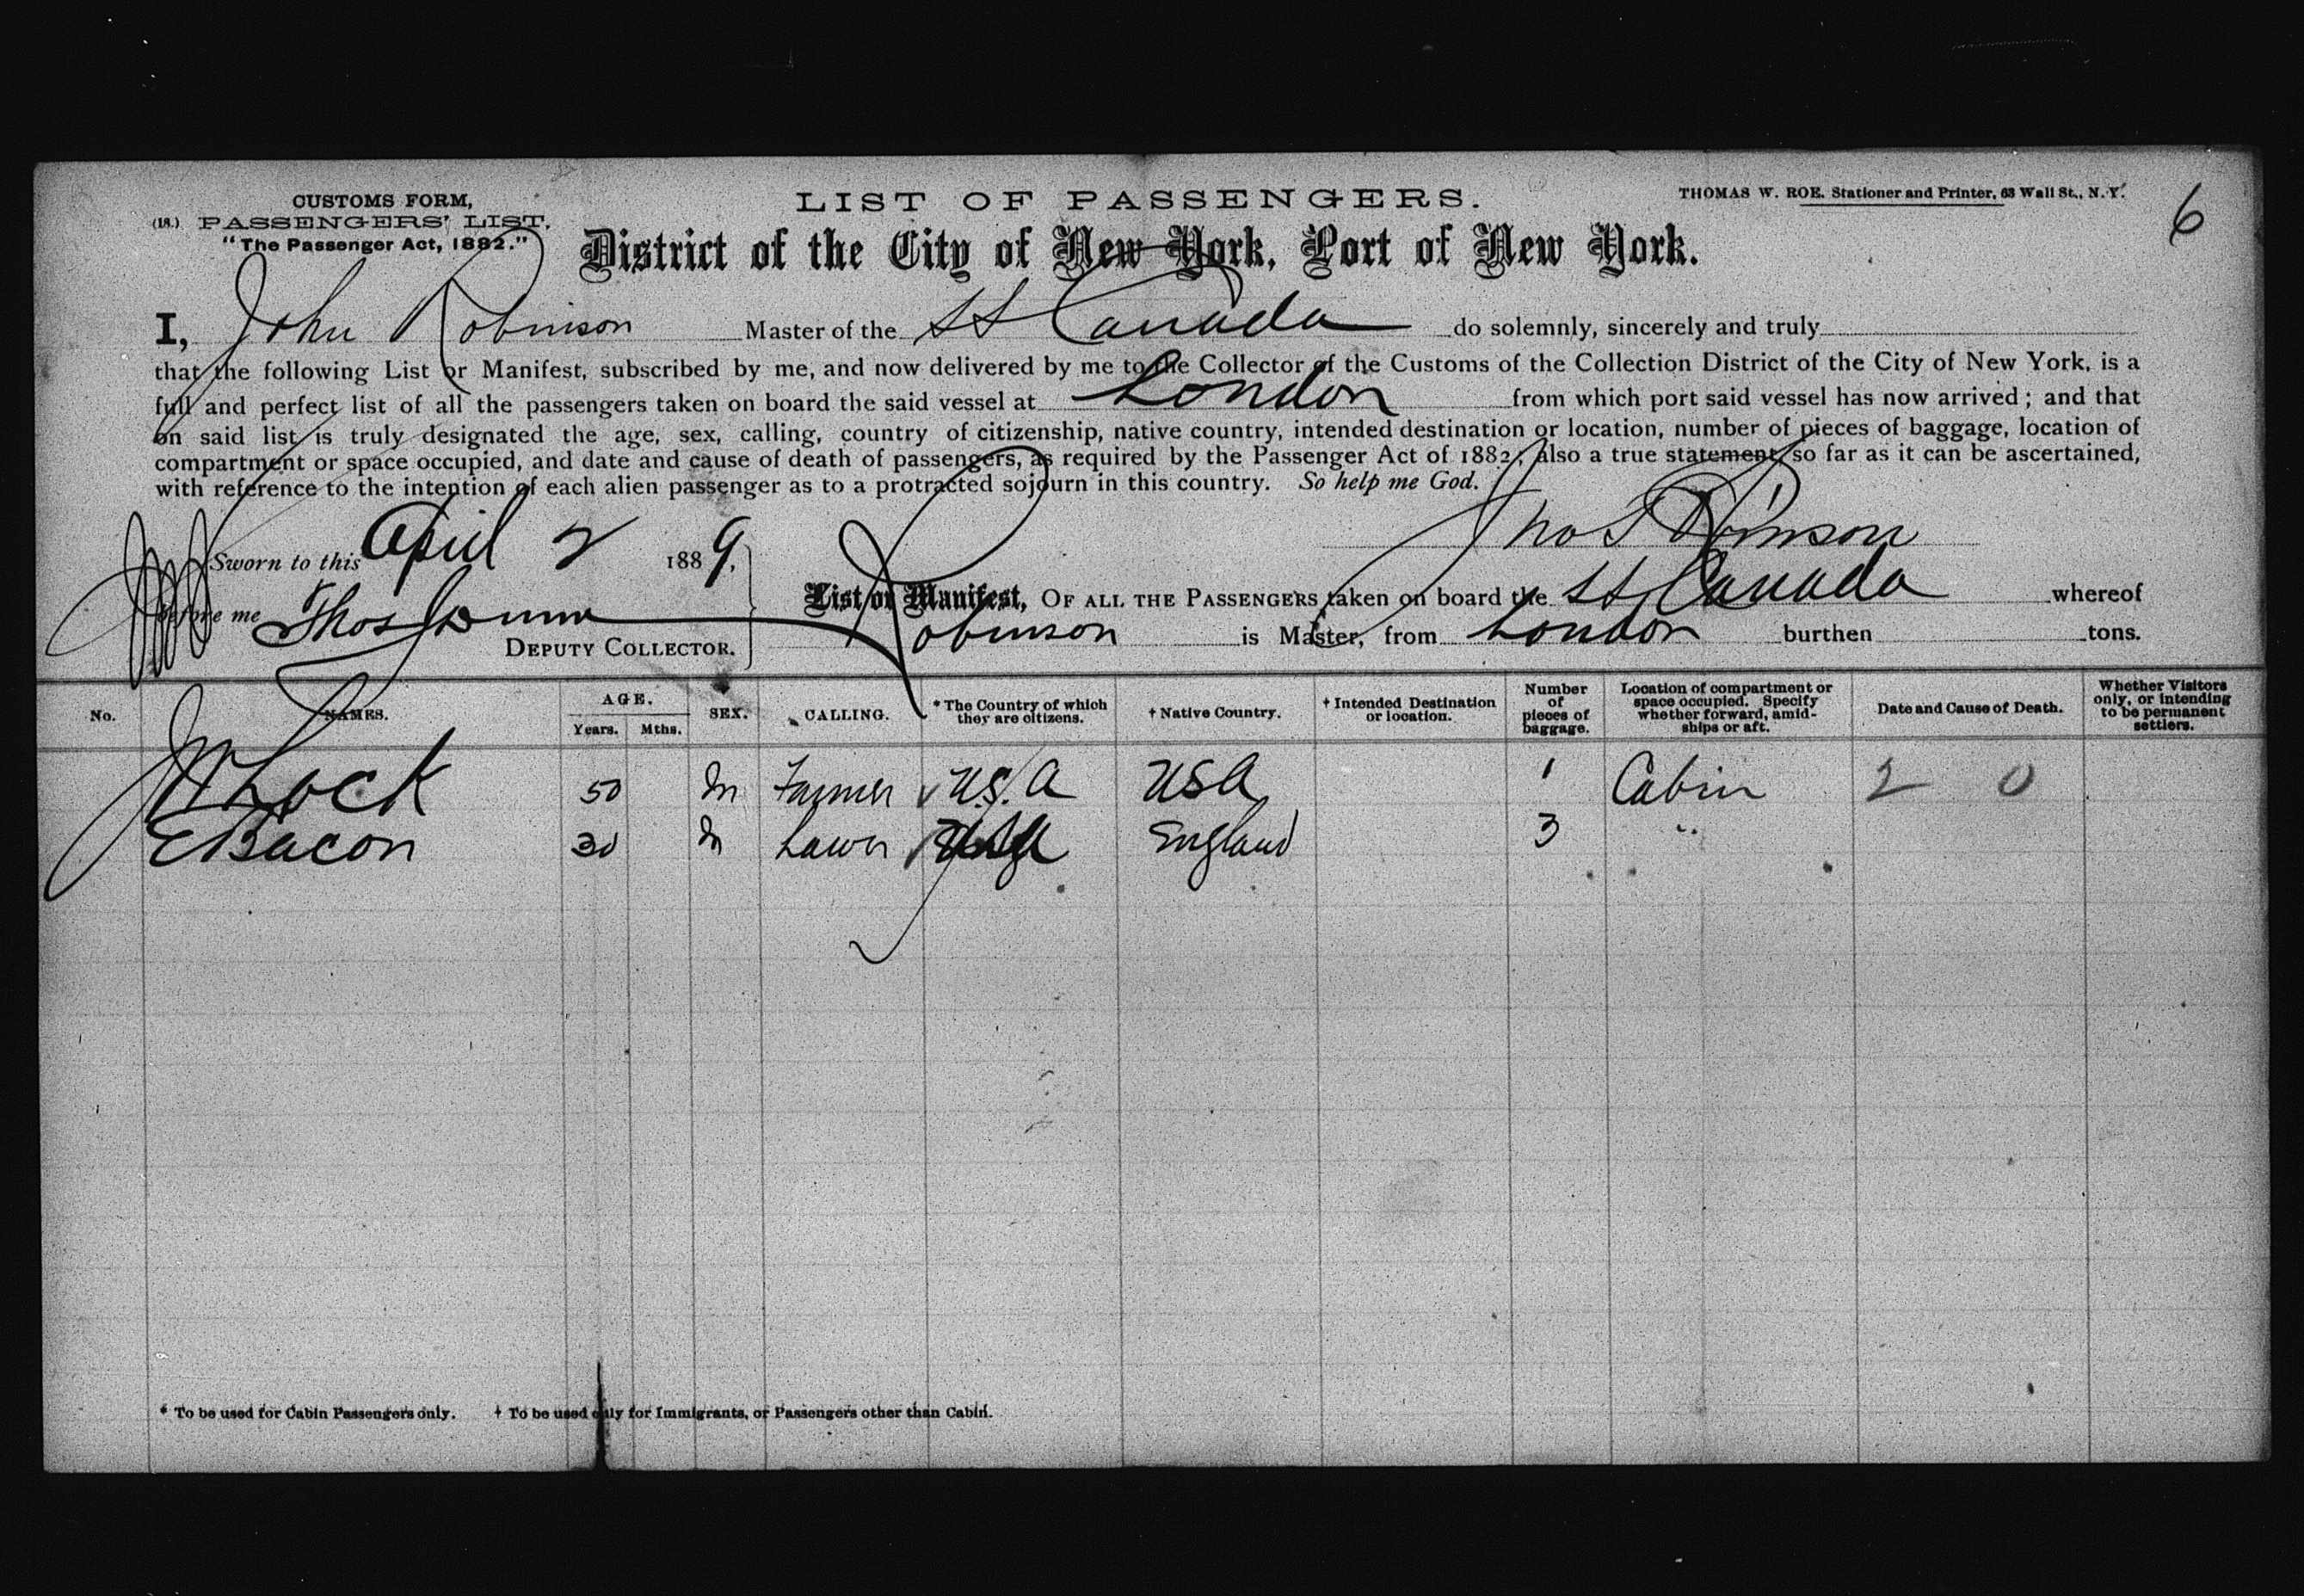 CUSTOMS FORM,
(18.) PASSENGERS' LIST.
"The Passenger Act, 1882."
LIST OF PASSENGERS.
THOMAS W. ROE. Stationer and Printer, 63 Wall St., N. Y.
6
District of the City of New York, Port of New York.
I, John Robinson Master of the SS Canada do solemnly, sincerely and truly
that the following List or Manifest, subscribed by me, and now delivered by me to the Collector of the Customs of the Collection District of the City of New York, is a
full and perfect list of all the passengers taken on board the said vessel at London from which port said vessel has now arrived; and that
on said list is truly designated the age, sex, calling, country of citizenship, native country, intended destination or location, number of pieces of baggage, location of
compartment or space occupied, and date and cause of death of passengers, as required by the Passenger Act of 1882; also a true statement, so far as it can be ascertained,
with reference to the intention of each alien passenger as to a protracted sojourn in this country. So help me God.
Robinson
Sworn to this April 2 1889,
before me Thos Dunn
DEPUTY COLLECTOR.
List or Manifest, OF ALL THE PASSENGERS taken on board the SS Canada whereof
Robinson is Master, from London burthen tons.
No. NAMES. AGE. Years. Mths. SEX. CALLING. * The Country of which they are citizens. † Native Country. † Intended Destination or location. Number of pieces of baggage. Location of compartment or space occupied. Specify whether forward, amidships or aft. Date and Cause of Death. Whether Visitors only, or intending to be permanent settlers.
Lock 50 M Farmer U.S.A USA 1 Cabin 2 0
E Bacon 30 M England 3 "
* To be used for Cabin Passengers only. † To be used only for Immigrants, or Passengers other than Cabin.